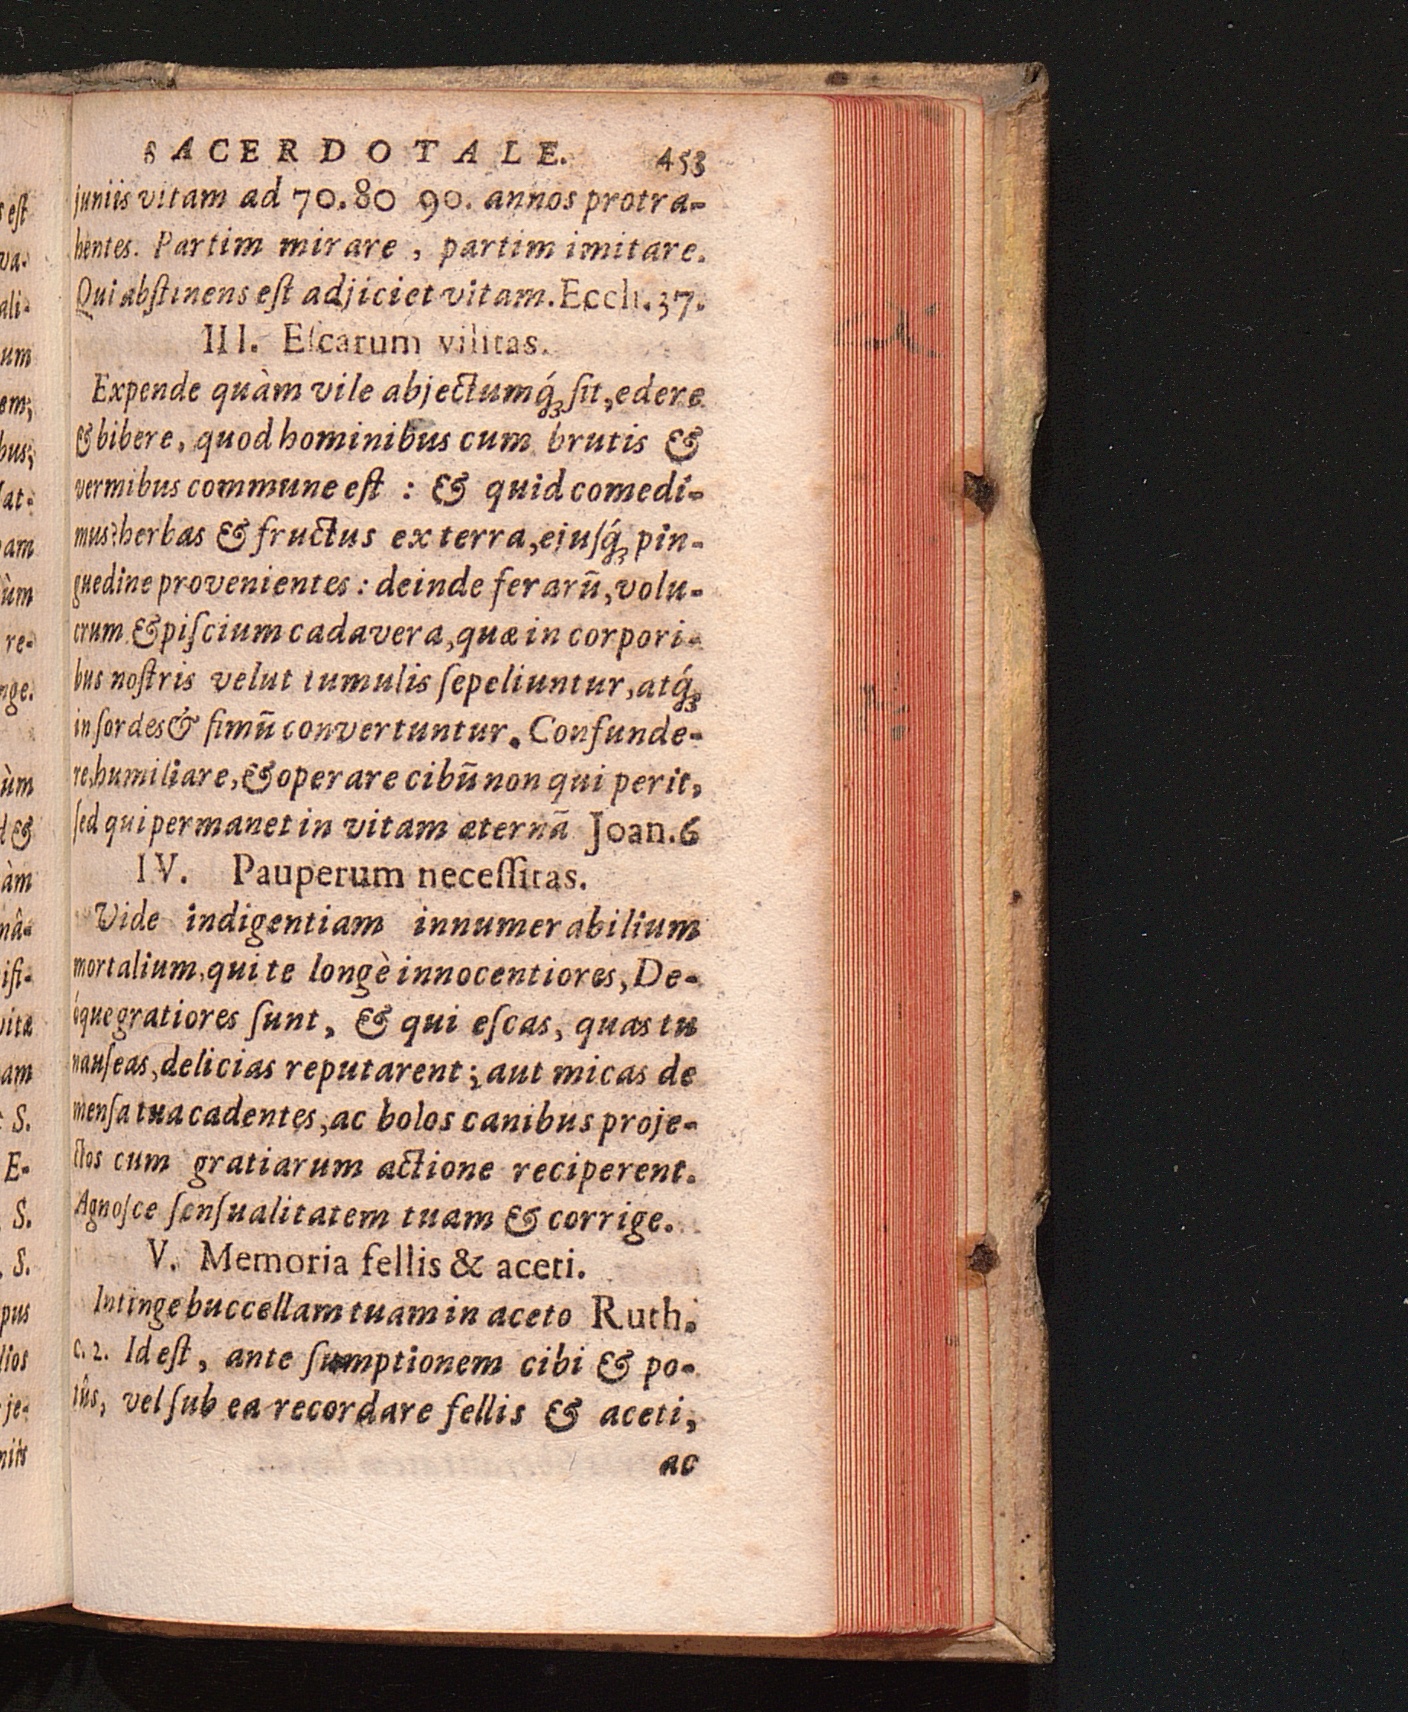 SACERDOTALE. 453
juniis vitam ad 70. 80 90. annos protra-
hentes. Partim mirare, partim imitare.
Qui abſtinens eſt adjiciet vitam. Eccli. 37.
III. Eſcarum vilitas.
Expende quàm vile abjectumq́ꝫ ſit, edere
& bibere, quod hominibus cum brutis &
vermibus commune eſt : & quid comedi-
mus? herbas & fructus ex terra, ejuſq́ꝫ pin-
guedine provenientes : deinde ferarũ, volu-
crum & piſcium cadavera, quæ in corpori-
bus noſtris velut tumulis ſepeliuntur, atq́ꝫ
in ſordes & fimũ convertuntur. Confunde-
re, humiliare, & operare cibũ non qui perit,
ſed qui permanet in vitam æternã Joan. 6
IV. Pauperum neceſſitas.
Vide indigentiam innumerabilium
mortalium, qui te longè innocentiores, De-
óque gratiores ſunt, & qui eſcas, quas tu
nauſeas, delicias reputarent; aut micas de
menſa tua cadentes, ac bolos canibus proje-
ctos cum gratiarum actione reciperent.
Agnoſce ſenſualitatem tuam & corrige.
V. Memoria fellis & aceti.
Intinge buccellam tuam in aceto Ruth.
c. 2. Id eſt, ante ſumptionem cibi & po-
tûs, vel ſub ea recordare fellis & aceti,
ac